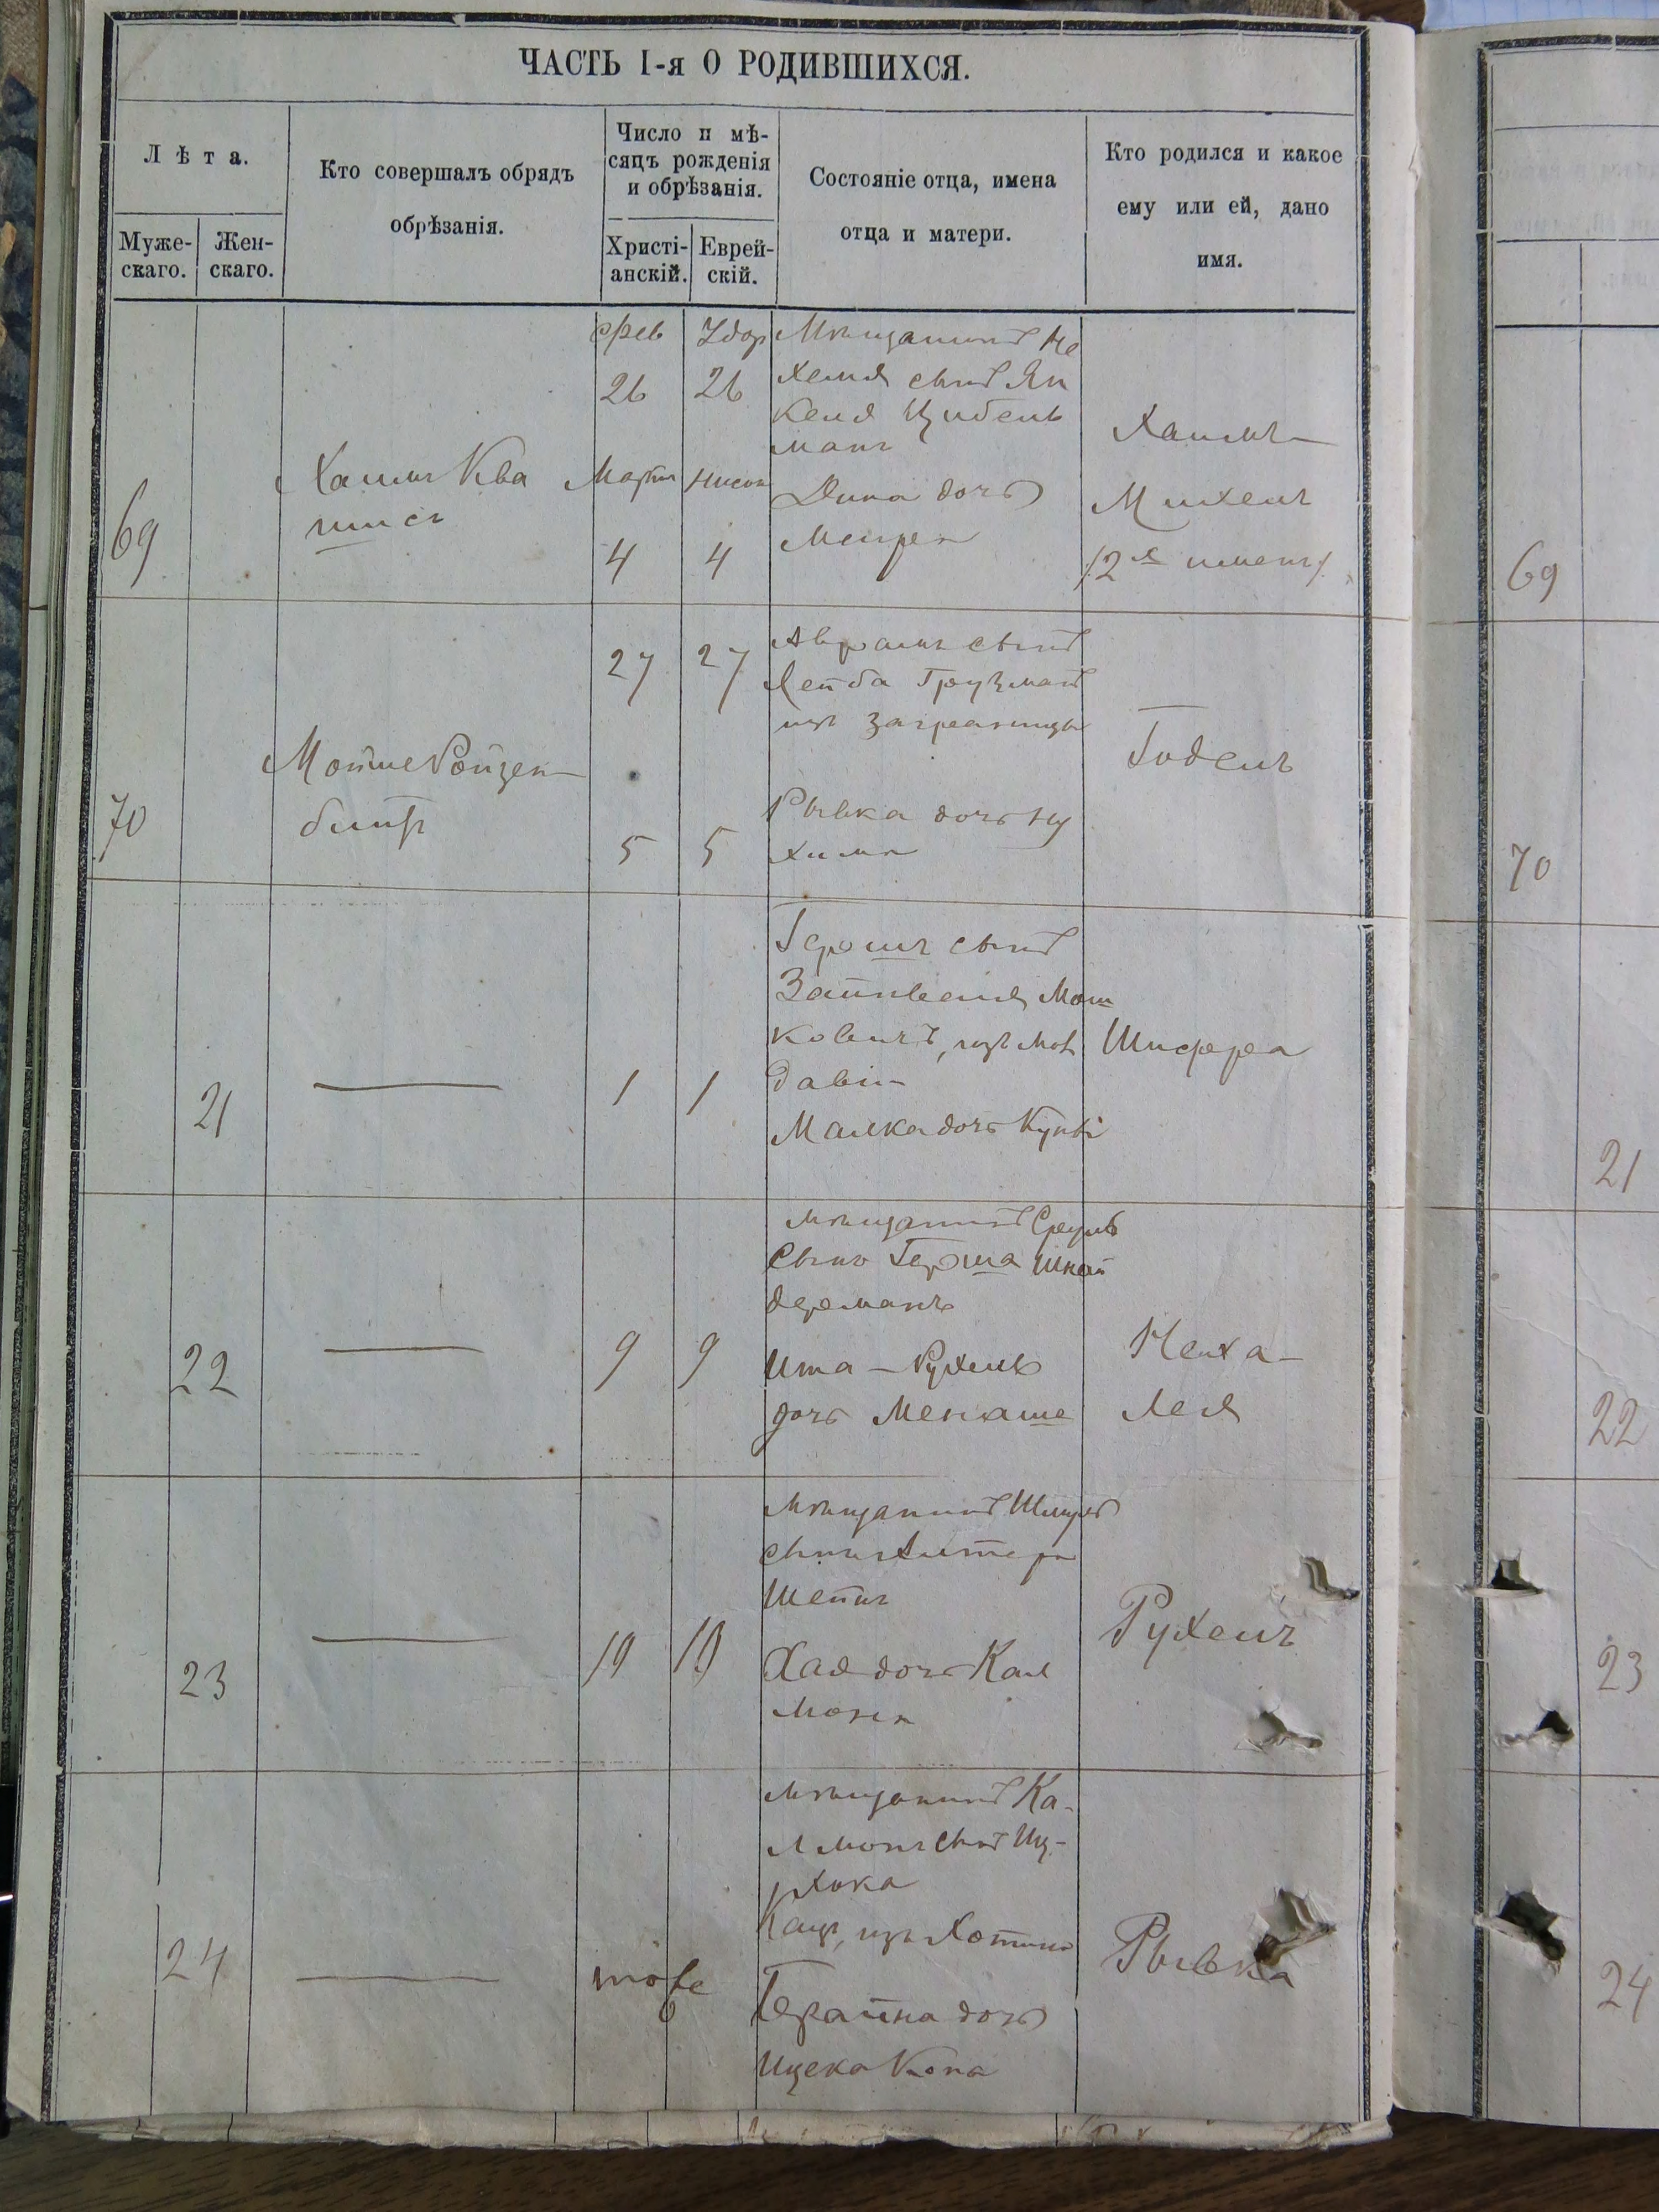 ЧАСТЬ I-я О РОДИВШИХСЯ.
Лѣта.
Муже-
скаго.
Жен-
скаго.
Кто совершалъ обрядъ
обрѣзанія.
Число и мѣ-
сяцъ рожденія
и обрѣзанія.
Христі-
анскій.
Еврей-
скій.
Состояніе отца, имена
отца и матери.
Кто родился и какое
ему или ей, дано
имя.
69
Хаимъ Ква
Фев
26
Марта
4
Адор
26
Нисон
4
Мѣщанинъ Не
хемя сынъ Ян
келя Цибель
манъ
Дина дочь
Меира
Хаимъ
Михель
/2е имени/
69
70
Мотие Ройзен
блитъ
27
5
27
5
Аврамъ сынъ
Лейба Грузманъ
изъ заграницы
Рывка дочь Ну
хима
Годель
70
21
1
1
Гершъ сынъ
Зайнвеля Мош
ковичъ, изъ Мол
давіи
Малка дочь
Шифра
21
22
9
9
мѣщанинъ Сруль
сынъ Герша Шнай
дерманъ
Ита - Рухель
дочь Менаше
Неха
Лея
22
23
19
19
мѣщанинъ Шмуль
сынъ Алтера
Шейнъ
Хая дочь Кал
мона
Рухель
23
24
тоже
мѣщанинъ Ка-
лмонъ сынъ Иц-
хока
Кацъ, изъ Хотина
дочь
Ицека Копа
Рывка
24